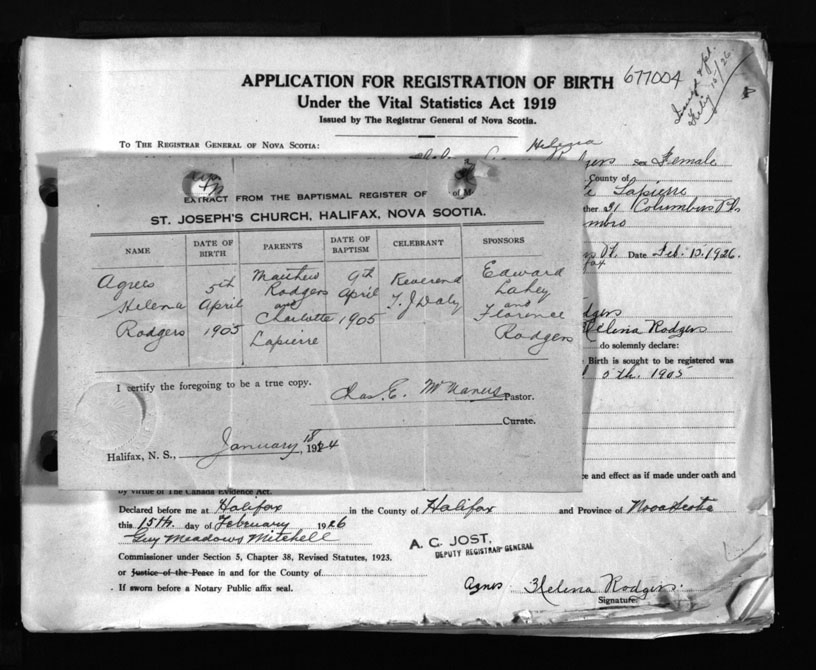 APPLICATION FOR REGISTRATION OF BIRTH 677004
Under the Vital Statistics Act 1919
Issued by The Registrar General of Nova Scotia.
To THE REGISTRAR GENERAL OF NOVA SCOTIA:
Helena
Rodgers Sex Female
County of
Lapierre
31 Columbus
Date Feb. 15. 1926.
Helena Rodgers
do solemnly declare:
Birth is sought to be registered was
5th. 1905
EXTRACT FROM THE BAPTISMAL REGISTER OF
ST. JOSEPH'S CHURCH, HALIFAX, NOVA SOOTIA.
NAME DATE OF BIRTH PARENTS DATE OF BAPTISM CELEBRANT SPONSORS
Agnes 5th Matthew 9th Reverend Edward
Helena April Rodgers April T. J Daly Lahey
Rodgers 1905 and 1905 and
Charlotte Florence
Lapierre Rodgers
I certify the foregoing to be a true copy.
Chas. E. McManus Pastor.
Curate.
Halifax, N. S., January 18, 1924
and effect as if made under oath and
by virtue of The Canada Evidence Act.
Declared before me at Halifax in the County of Halifax and Province of Nova Scotia
this 15th. day of February 1926
Guy Meadows Mitchell
A. C. JOST,
DEPUTY REGISTRAR GENERAL
Commissioner under Section 5, Chapter 38, Revised Statutes, 1923.
or Justice of the Peace in and for the County of
If sworn before a Notary Public affix seal.
Agnes Helena Rodgers.
Signature.